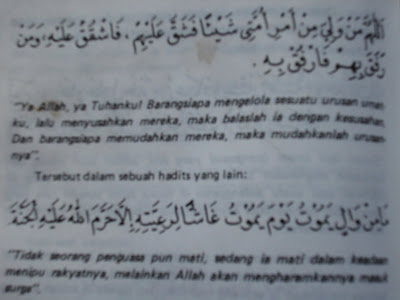 اَللّٰهُمَّ مَنْ وَلِيَ مِنْ اَمْرِ اُمَّتِى شَيْئًا فَشَقَّ عَلَيْهِمْ ، فَاشْقُقْ عَلَيْهِ ، وَمَنْ
رَفَقَ بِهِمْ فَارْفُقْ بِهِ .
"Ya Allah, ya Tuhanku! Barangsiapa mengelola sesuatu urusan umat-
ku, lalu menyusahkan mereka, maka balaslah ia dengan kesusahan,
Dan barangsiapa memudahkan mereka, maka mudahkanlah urusan-
nya".
Tersebut dalam sebuah hadits yang lain:
مَامِنْ وَالٍ يَمُوْتُ يَوْمَ يَمُوْتُ غَاشًّا لِرَعِيَّتِهِ اِلَّا حَرَّمَ اللّٰهُ عَلَيْهِ الْجَنَّةَ
"Tidak seorang penguasa pun mati, sedang ia mati dalam keadaan
menipu rakyatnya, melainkan Allah akan mengharamkannya masuk
surga".